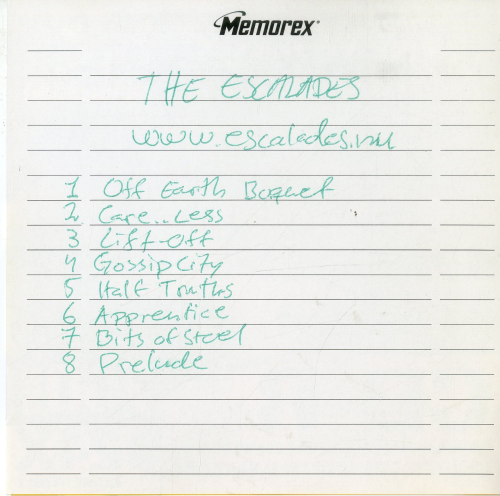 Memorex
THE ESCALADES
www.escalades.nu
1 Off Earth Boquet
2 Care..Less
3 Lift-Off
4 Gossip City
5 Half Truths
6 Apprentice
7 Bits of Steel
8 Prelude